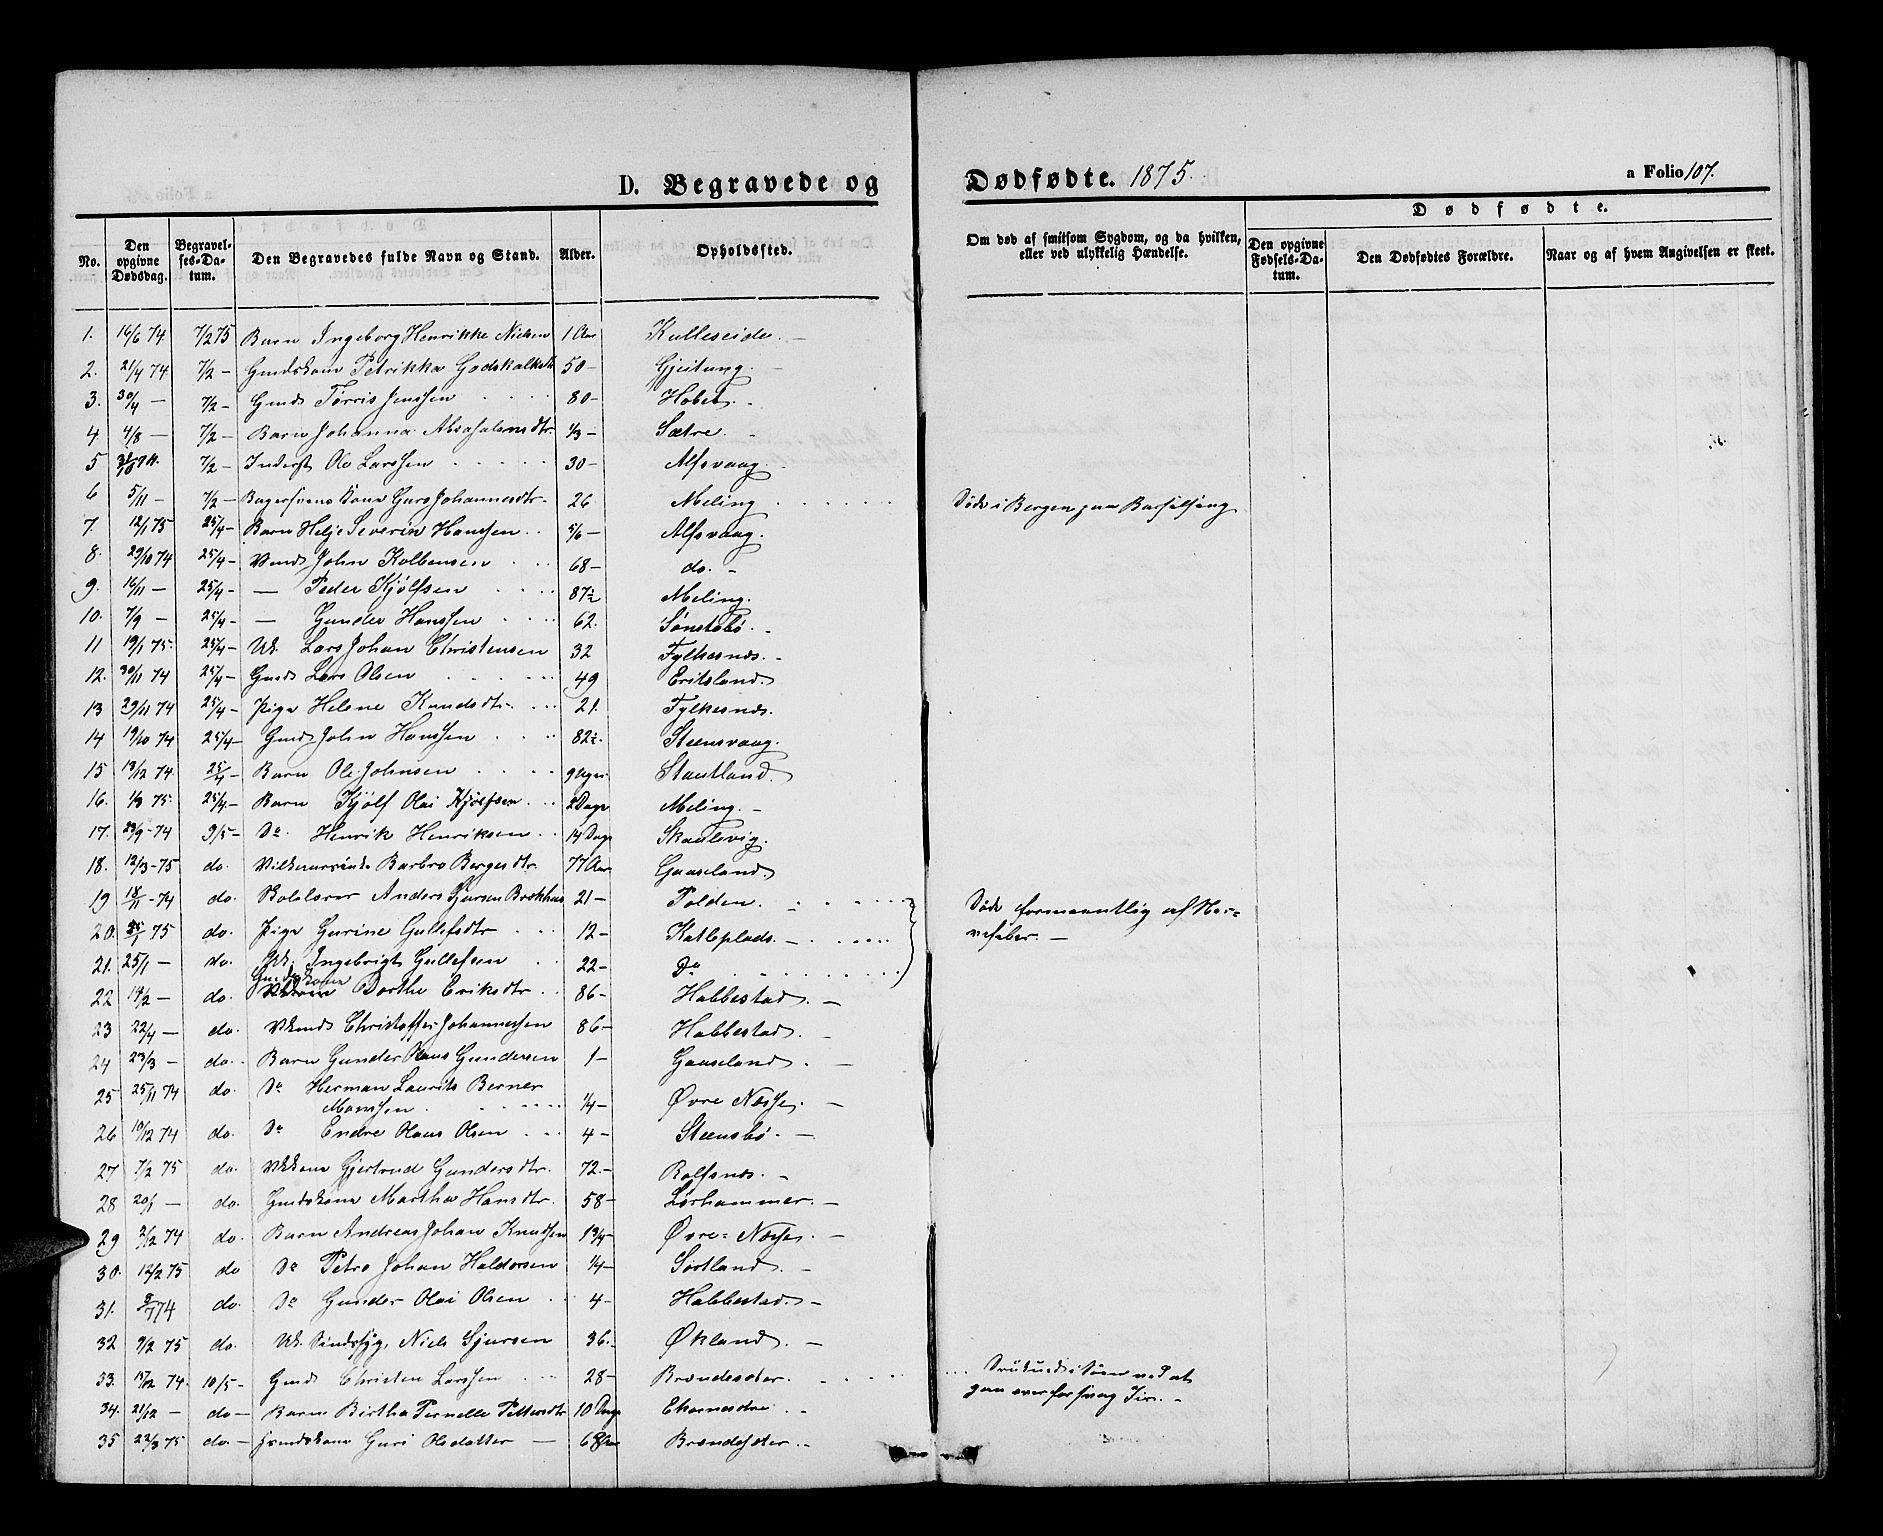 D. Begravede og Dødfødte. 1875. a Folio 107.
No. Den opgivne Dødsdag. Begravelses-Datum. Den Begravedes fulde Navn og Stand. Alder. Opholdssted. Om død af smitsom Sygdom, og da hvilken, eller ved ulykkelig Hændelse. Dødfødte. Den opgivne Fødsels-Datum. Den Dødfødtes Forældre. Naar og af hvem Angivelsen er skeet.
1. 16/6 74. 7/2 75 Barn Ingeborg Henrikke Nielsen 1 Aar Kulleseide. –
2. 21/4 74 7/2 – Gmdskone Petrikka Godskalksdt 50 – Gjeitung. –
3. 30/4 – 7/2 – Gmd Tørris Jenssen 80 – Hobet. –
4 4/8 – 7/2 – Barn Johanna Absalonsdtr. 1/3 – Sætre. –
5 74. 7/2 – Inderst Ole Larssen 30 – Alfsvaag. –
6 5/11 – 7/2 – Bagersvens Kone Guro Johannesdtr. 26 Meling. Døde i Bergen paa Barselseng.
7. 12/1 75 25/4 – Barn Helje Severin Hanssen 5/6 – Alfsvaag.
8. 29/10 74 25/4 – John Kolbensen 68 – do. –
9. 16/11 – 25/4 – — Peder Kjølfsen 87½ Meling.
10. 7/9 – 25/4 – — Gunder Hanssen 62. Sønstebø. –
11 19/1 75. 25/4 – Uk. Lars Johan Christensen 32 Fylkesnæs. –
12. 30/11 74 25/4 – Gmd Lars Olsen 49 Eritsland.
13 29/11 74 25/4 – Pige Helene Knudsdtr. 21. Fylkesnæs.
14 19/10 74 25/4 – Gmd John Hanssen 82½. Steensvaag.
15 13/12 74. 25/4 – Barn Ole Johnsen 9 Uger Stautland.
16. 1/3 75. 25/4 – Barn Kjølf Olai Kjølfsen 2 Dage Meling. –
17. 29/9 – 74 9/5 – Do. Henrik Henriksen 14 Dage Skaalevig.
18. 12/3 – 75 do. Barbro Bergesdtr. 77 Aar Gaaseland.
19 18/11 – 74 do. Anders Sjursen Brekhus 21 – Polden. Døde formeentlig af Ner-
20. 75 do. Pige Gurine Gullefsdtr 12 – Katleplads. – vefeber. –
21. 25/1 – do. Uk. Ingebrigt Gullefsen 22 – Do
22 14/2 – do. Gmdskone Dorthe Eriksdtr 86 – Habbestad. –
23 22/4 – do. Christoffer Johannessen 86 – Habbestad. –
24 23/3 – do. Barn Gunder Olaus Gundersen 1 – Gaaseland. –
25 25/11 74 do. Do Herman Laurits Berner
Monssen 1/4 – Øvre Næsse. –
26 10/12 74 do. Do Endre Olaus Olsen 4 – Steensbø. –
27 7/2 75 do. Gjertrud Gundersdtr. 72. – Rolfsnæs. –
28 20/1 – do. Gmdskone Martha Hansdtr. 58 – Lørhammer. –
29 2/12 74 do. Barn Andreas Johan Knudsen 1¾ – Øvre-Næsse. –
30. 12/2 75 do Do Petro Johan Haldorsen 1/4 – Sørtland. –
31. 74 do. Do Gunder Olai Olsen 4 – Habbestad. –
32 9/2 75 do. Uk. Sindssyg, Niels Sjursen 36. Økland. –
33. 15/12 74. 10/5 – Gmd Christen Larssen 28 – Brandesæter. Druknede i Søen ved at
gaa over for svag Iis. –
34. 21/12 – do – Barn Birthe Pernelle Pettersdtr 10 Dage Ekornesæter. –
35 22/3 75 do. – Gmdskone Guri Olsdatter – 68 Aar Brandesæter. –